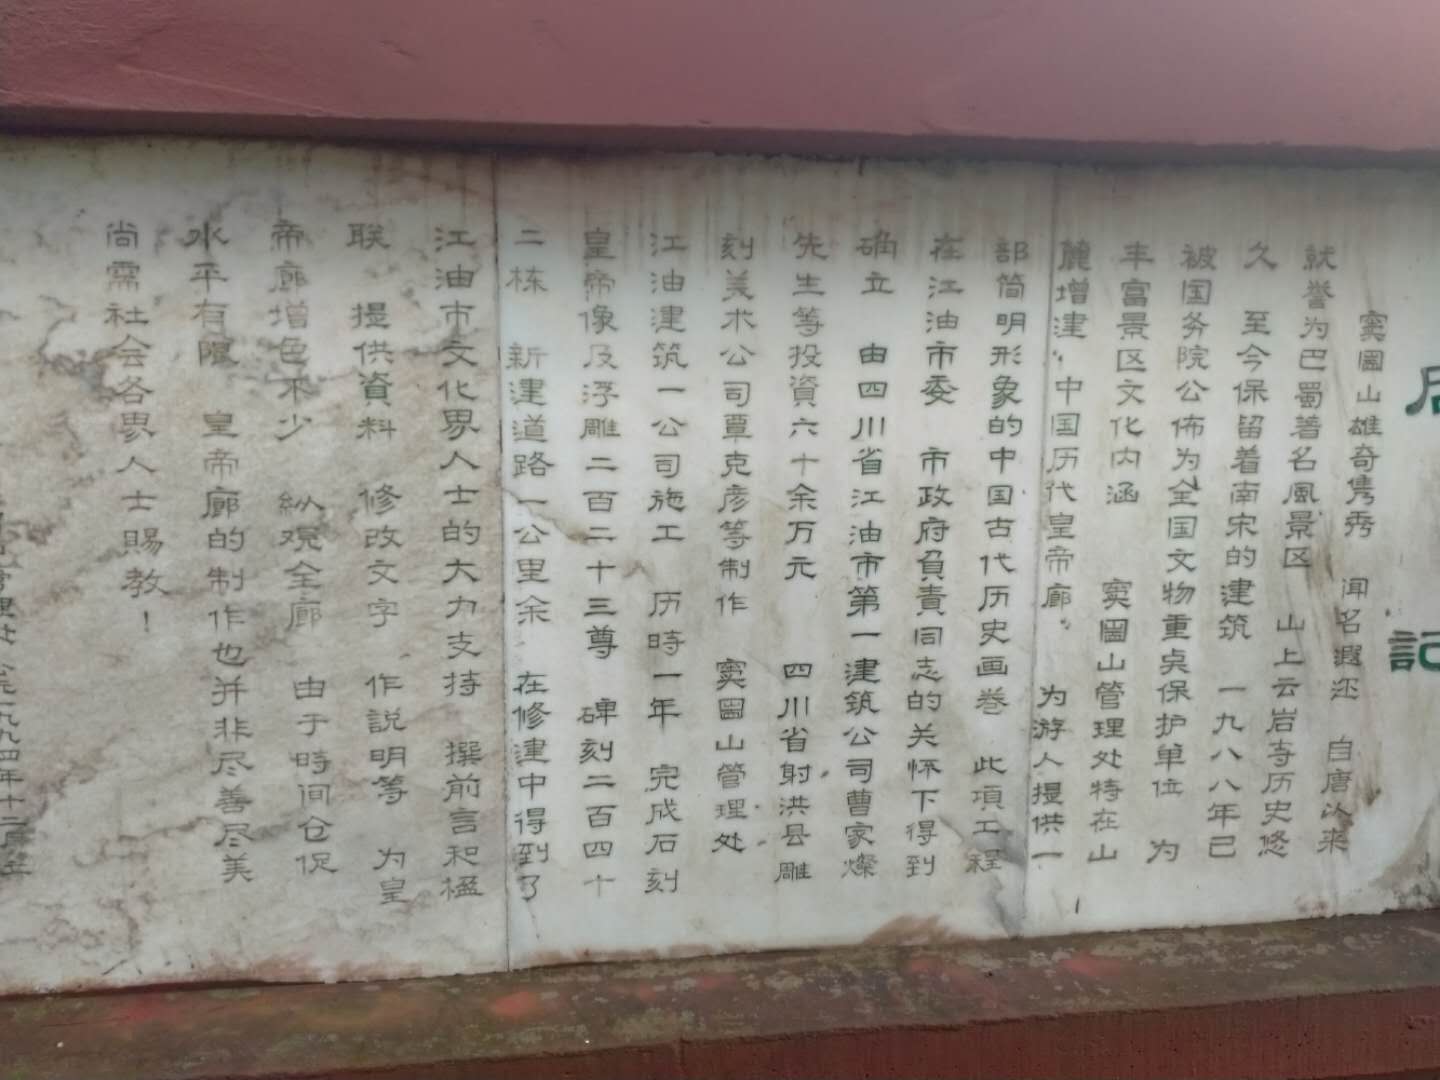 后記
窦圌山雄奇隽秀 闻名遐迩 自唐以来
就誉为巴蜀著名風景区 山上云岩寺历史悠
久 至今保留着南宋的建筑 一九八八年已
被国务院公佈为全国文物重点保护单位 为
丰富景区文化内涵 窦圌山管理处特在山
麓增建中国历代皇帝廊 为游人提供一
部简明形象的中国古代历史画卷 此項工程
在江油市委 市政府負責同志的关怀下得到
确立 由四川省江油市第一建筑公司曹家燦
先生等投資六十余万元 四川省射洪县雕
刻美术公司覃克彦等制作 窦圌山管理处
江油建筑一公司施工 历時一年 完成石刻
皇帝像及浮雕二百二十三尊 碑刻二百四十
二栋 新建道路一公里余 在修建中得到了
江油市文化界人士的大力支持 撰前言和楹
联 提供資料 修改文字 作説明等 为皇
帝廊增色不少 纵观全廊 由于時间仓促
水平有限 皇帝廊的制作也并非尽善尽美
尚需社会各界人士賜教！
管理处 公元一九九四年十二月